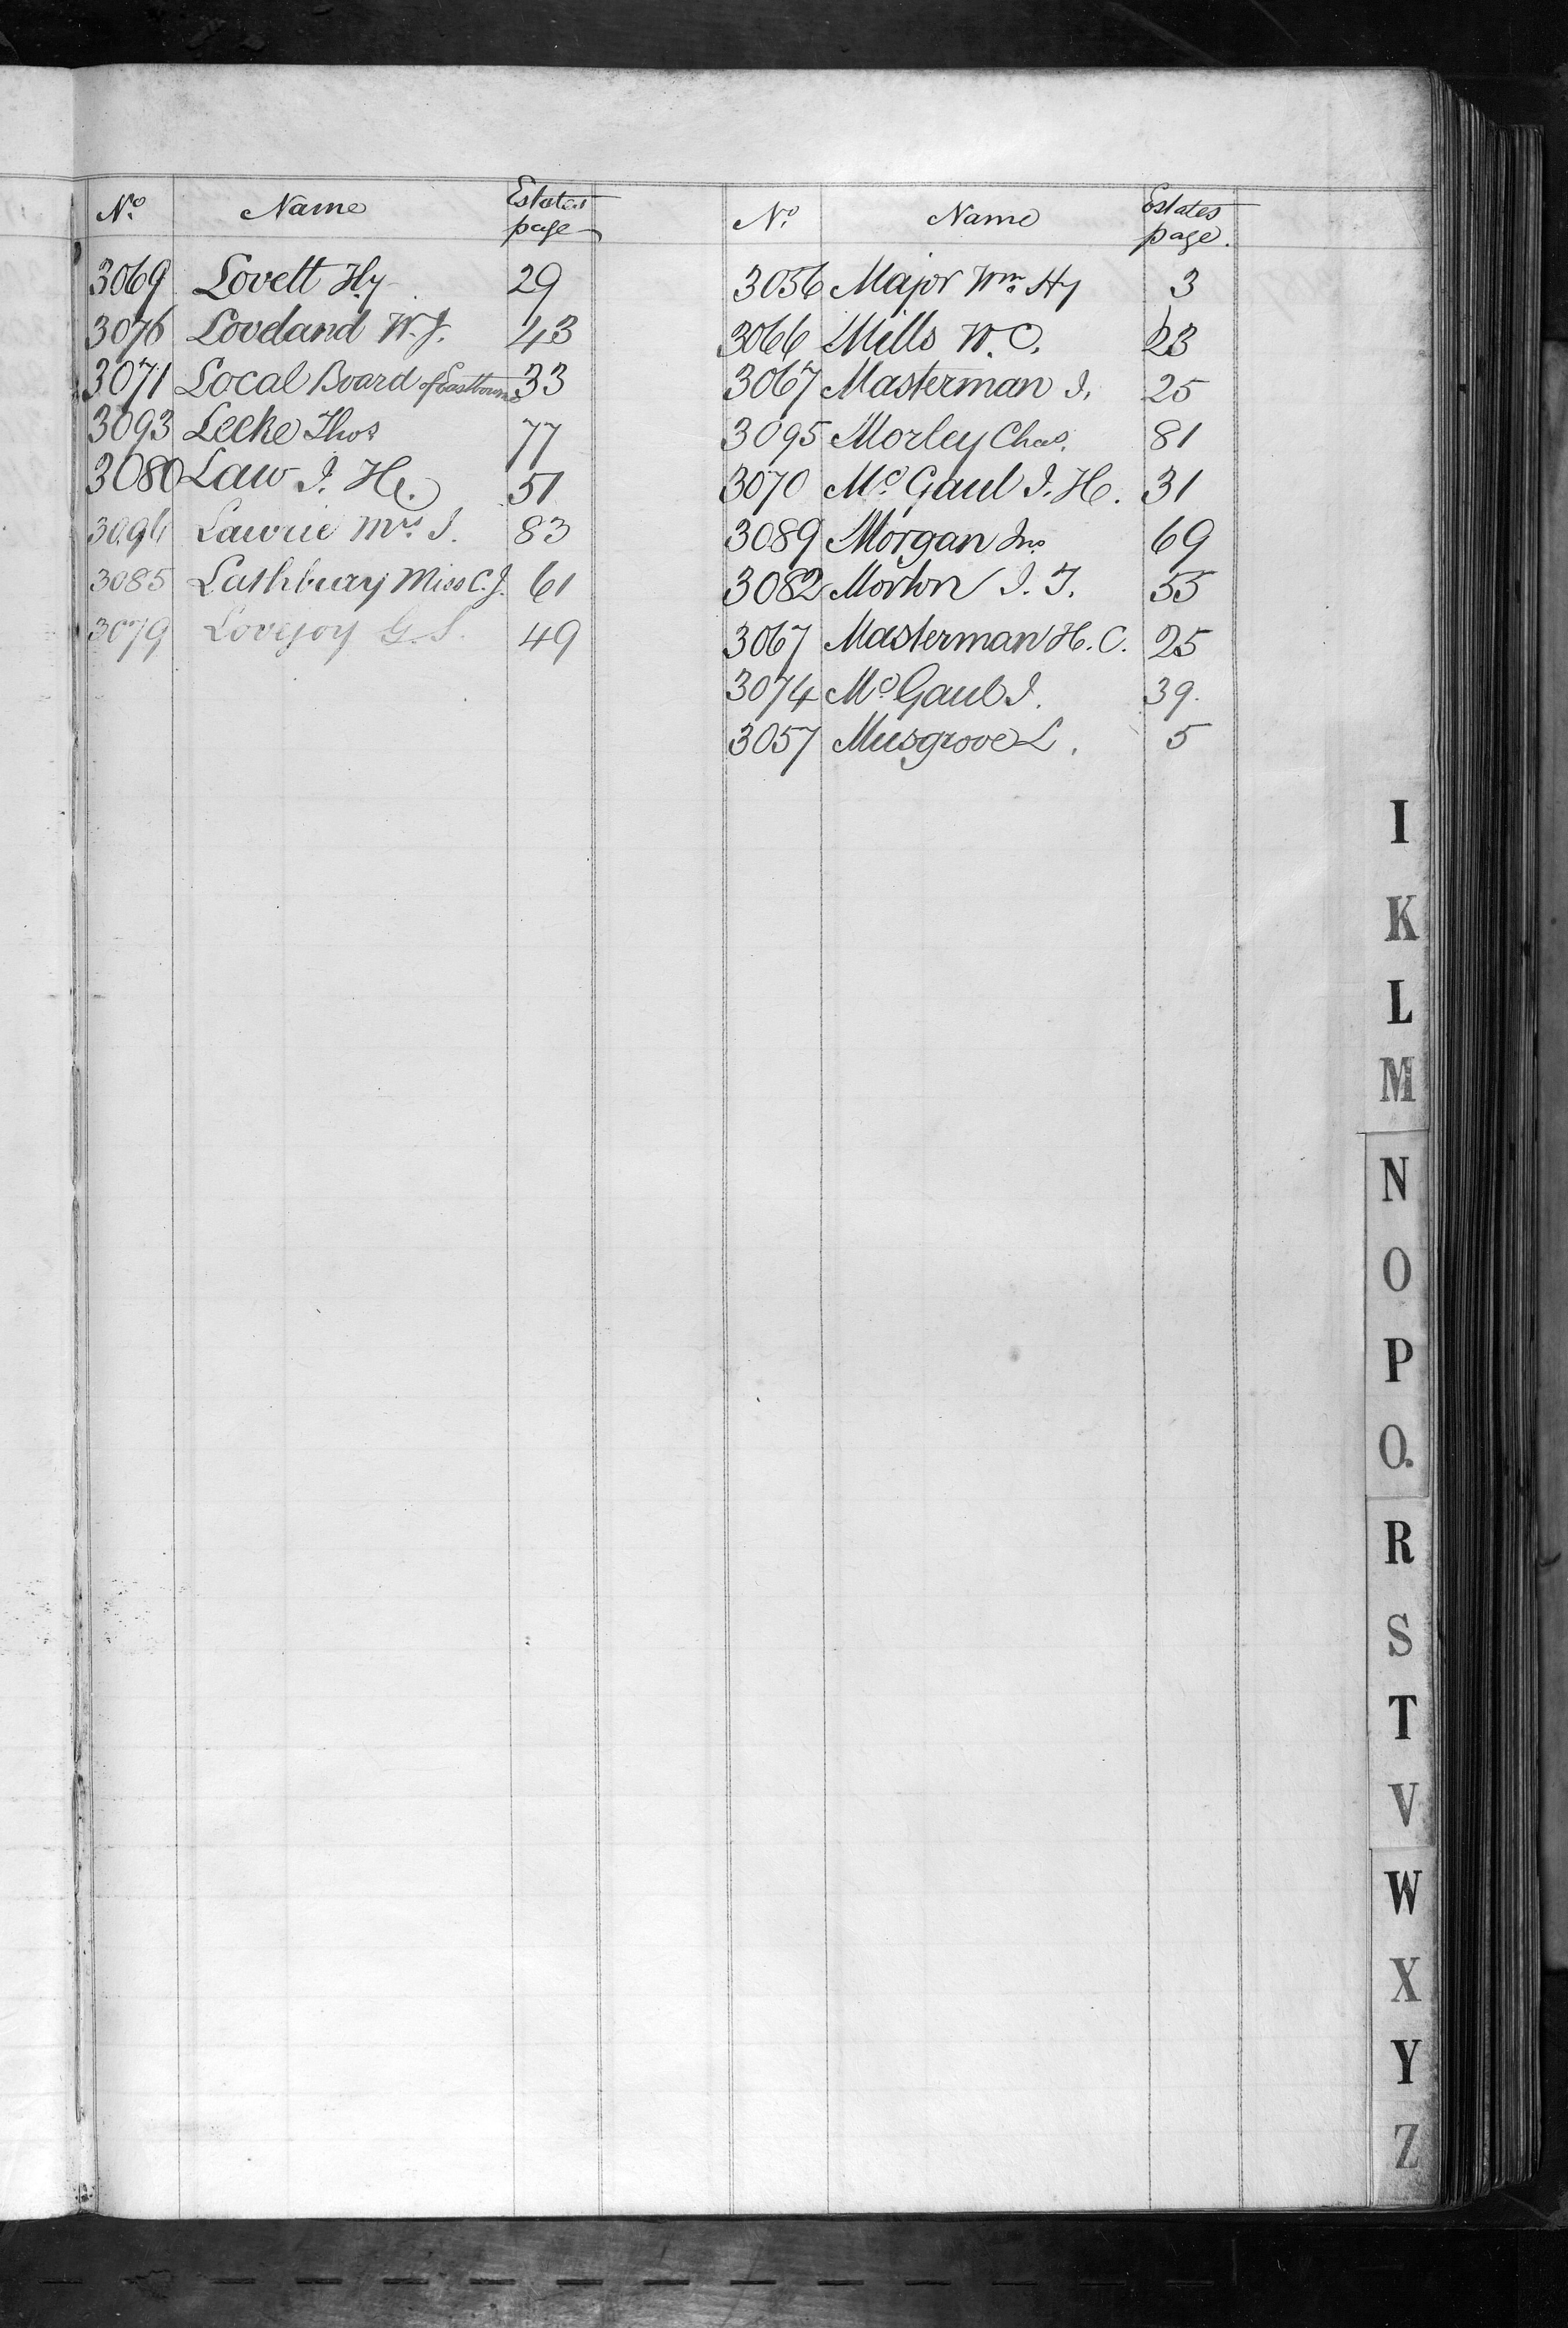 No. Name Estates page
3069 Lovett Hy 29
3076 Loveland W. J. 43
3071 Local Board of Eastbourne 33
3093 Leeke Thos 77
3080 Law J. H. 51
3096 Lawrie Mrs. J. 83
3085 Lathbury Miss C. J. 61
3079 Lovejoy G. S. 49
No. Name Estates page.
3056 Major Wm. Hy 3
3066 Mills W. C. 23
3067 Masterman J. 25
3095 Morley Chas. 81
3070 Mc. Gaul J. H. 31
3089 Morgan Jno. 69
3082 Morton J. T. 55
3067 Masterman H. C. 25
3074 Mc Gaul J. 39.
3057 Musgrove L. 5
I
K
L
M
N
O
P
Q
R
S
T
V
W
X
Y
Z